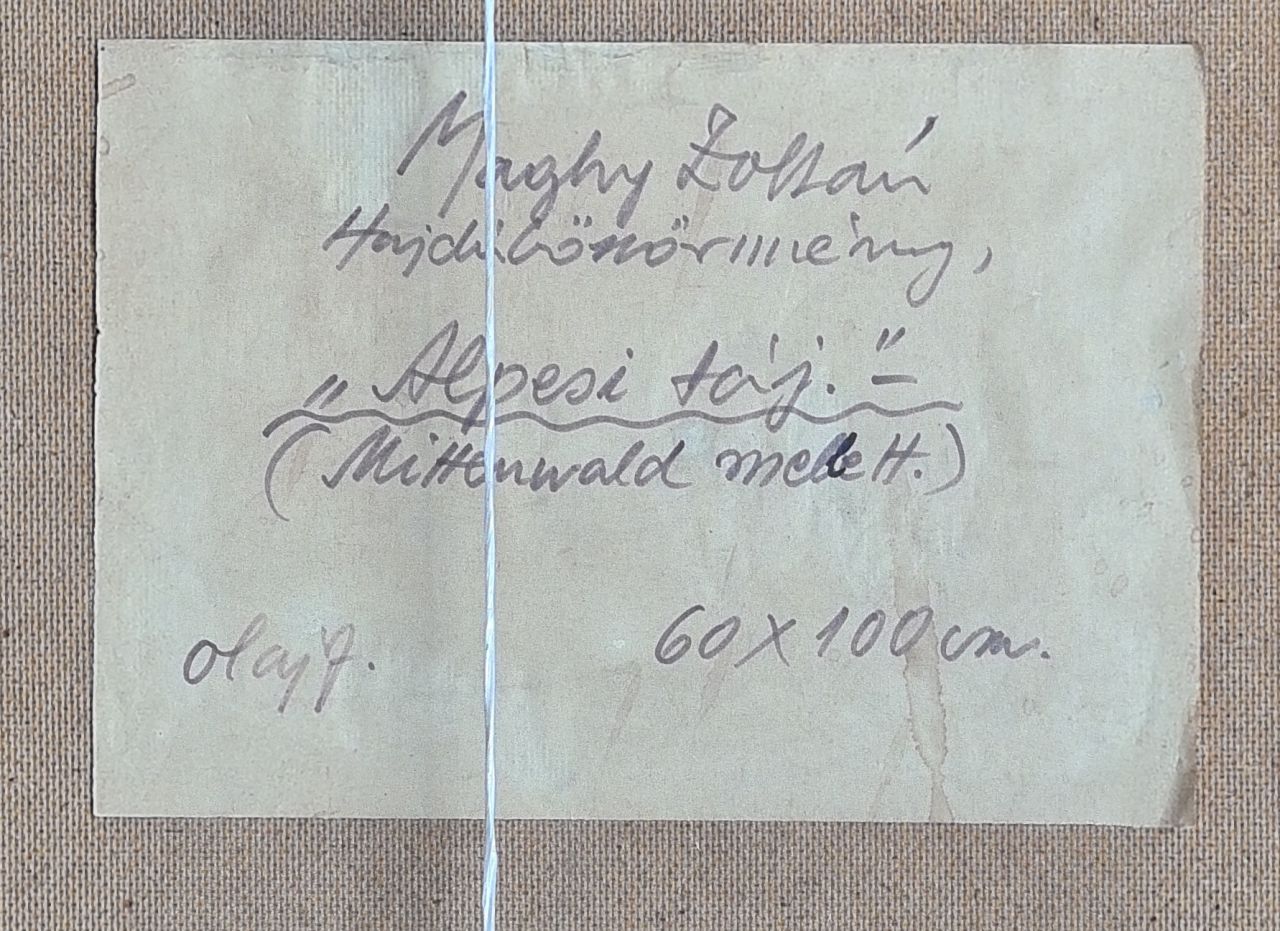 Maghy Zoltán
Hajdúböszörmény,
„Alpesi táj.” –
(Mittenwald mellett.)
olajf.
60 X 100 cm.